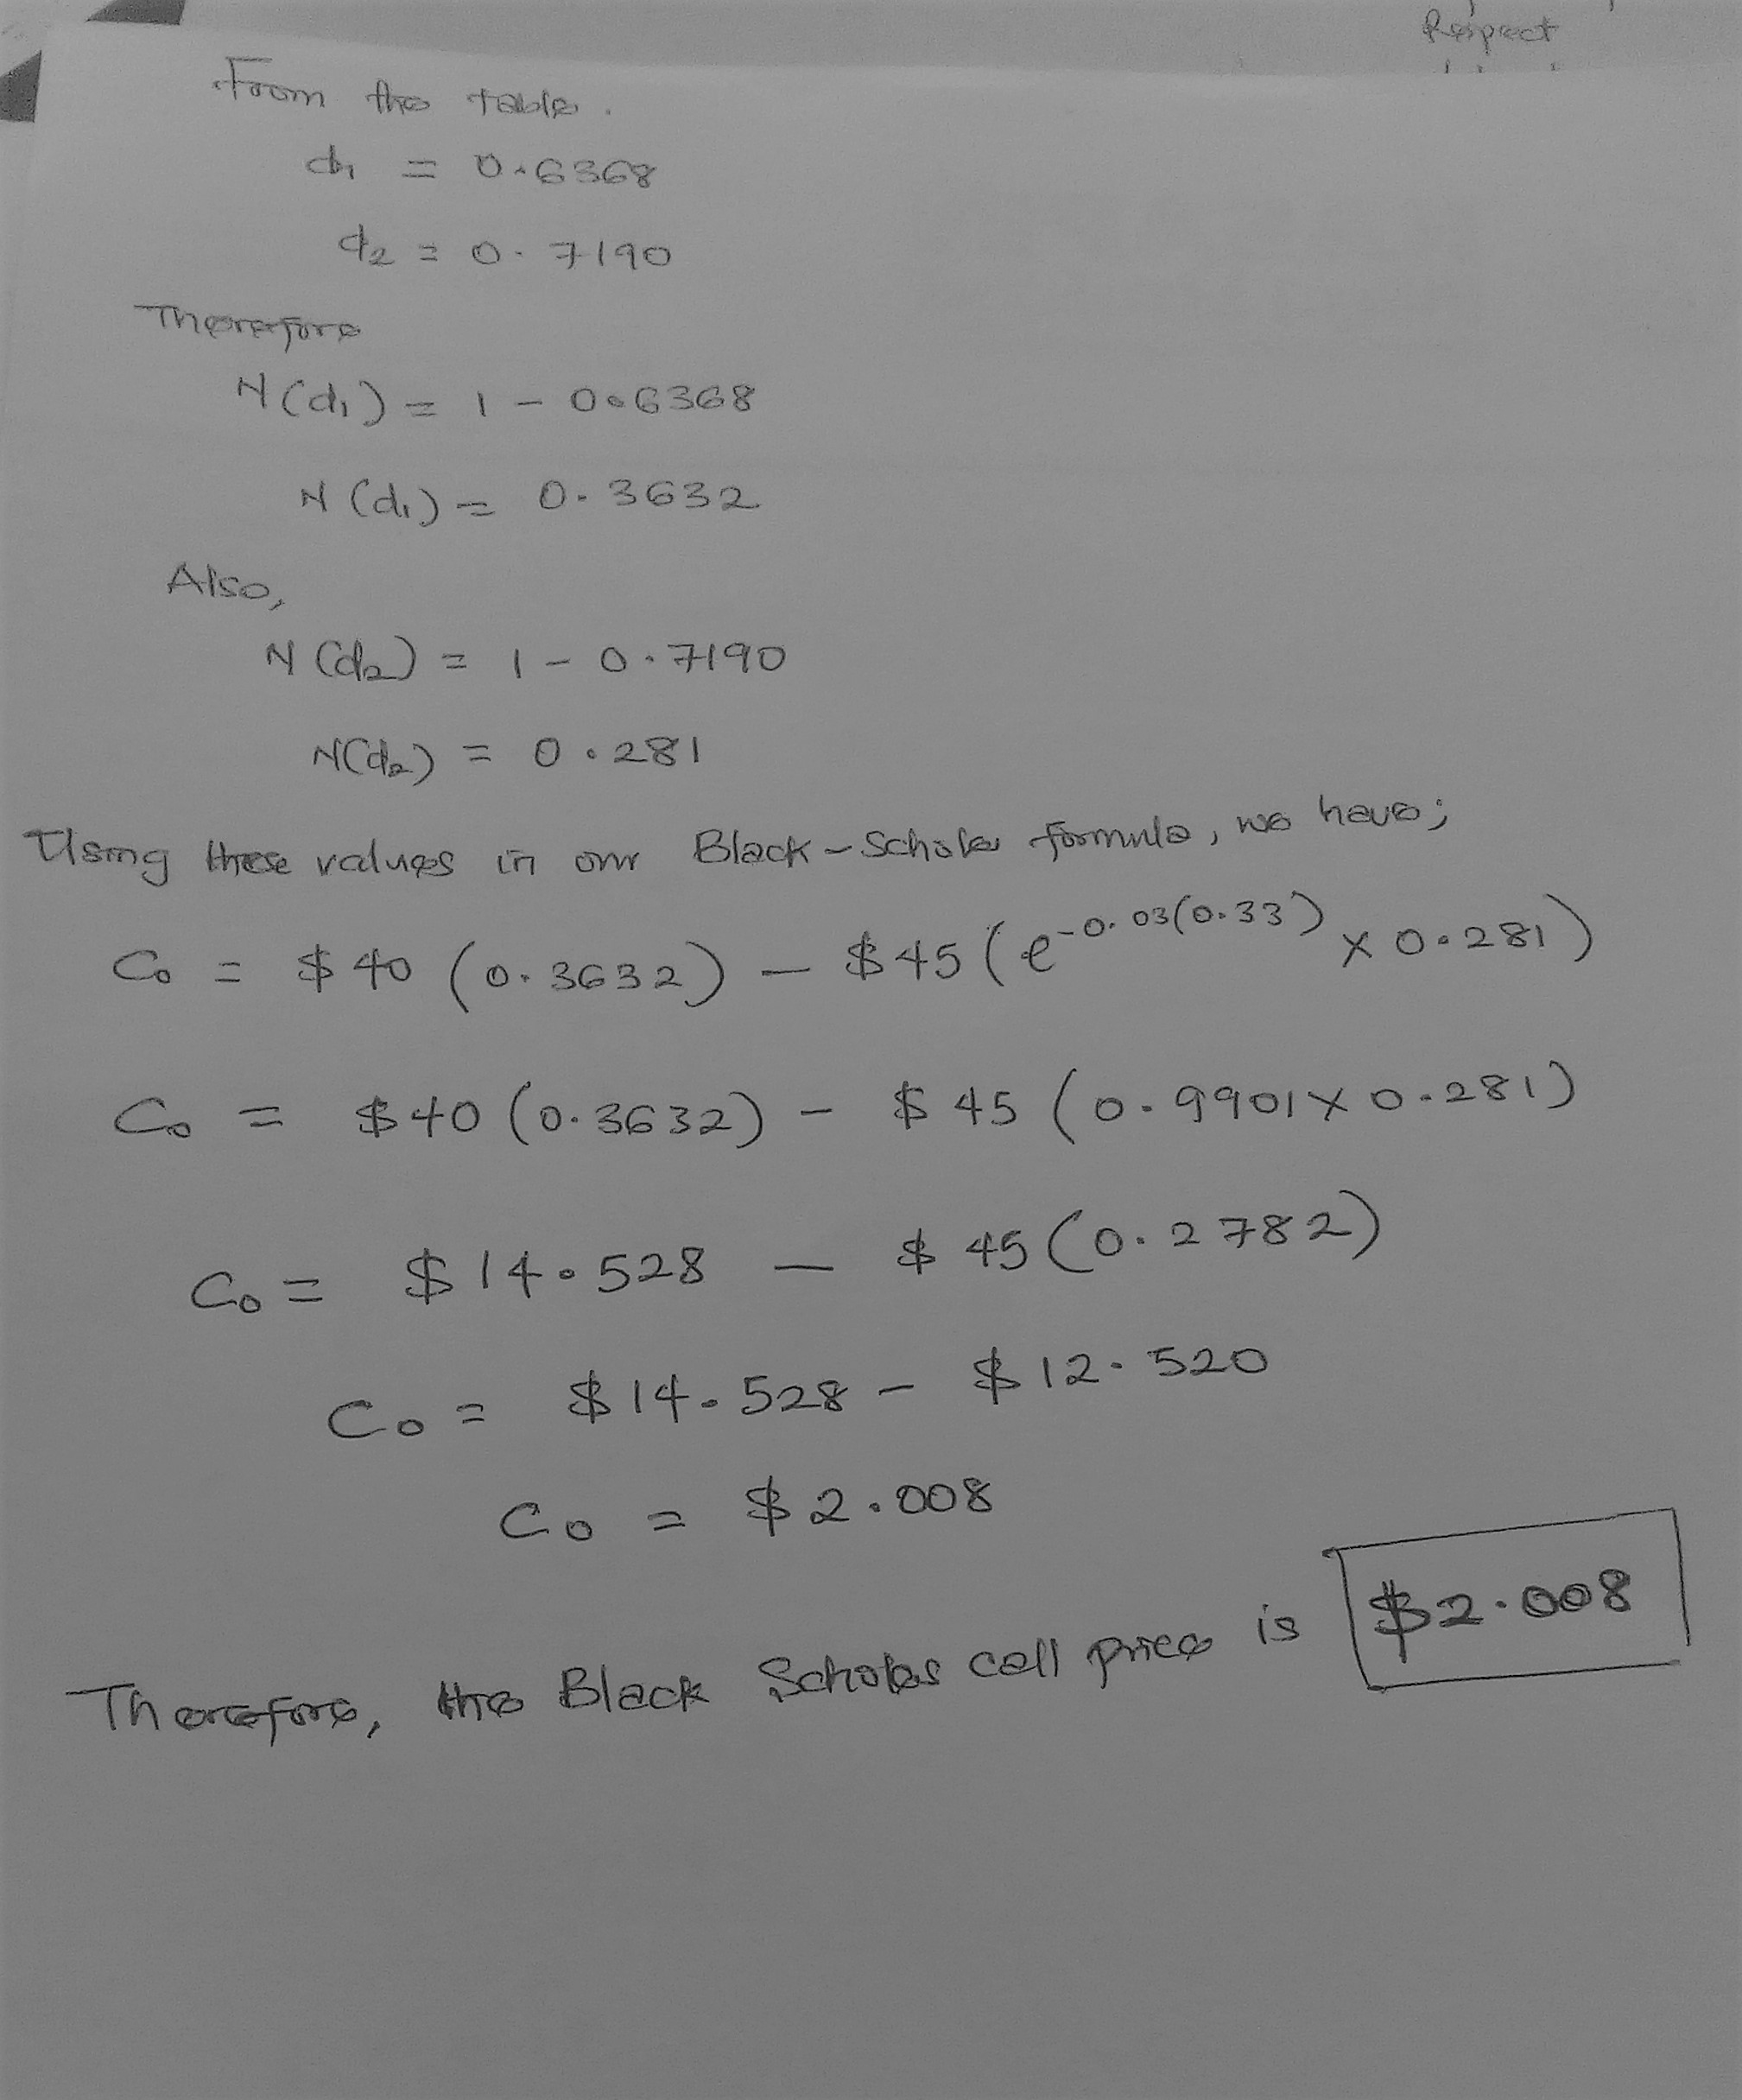 Respect
From the table.
d1 = 0.6368
d2 = 0.7190
Therefore
N(d1) = 1 - 0.6368
N(d1) = 0.3632
Also,
N(d2) = 1 - 0.7190
N(d2) = 0.281
Using these values in our Black-Scholes formula, we have;
C0 = $40 (0.3632) - $45 (e^-0.03(0.33) × 0.281)
C0 = $40 (0.3632) - $45 (0.9901 × 0.281)
C0 = $14.528 - $45 (0.2782)
C0 = $14.528 - $12.520
C0 = $2.008
Therefore, the Black Scholes call price is $2.008